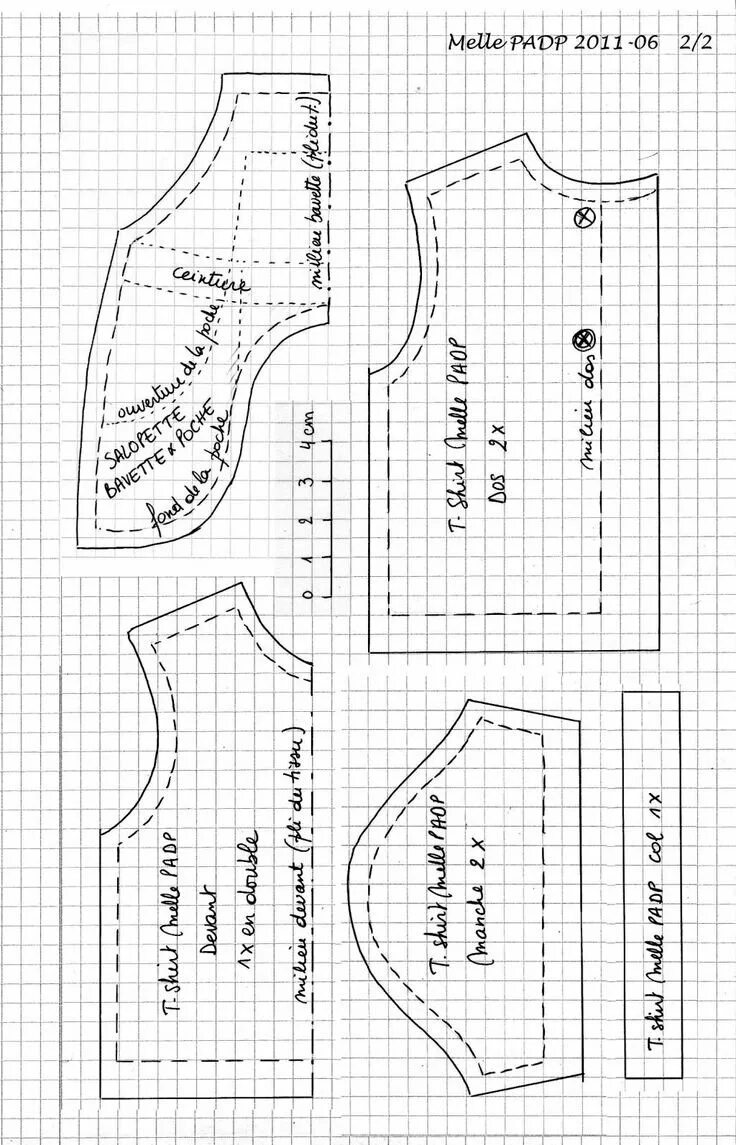 Melle PADP 2011-06 2/2
milieu bavette (pli du t.)
ceinture
ouverture de la poche
SALOPETTE
BAVETTE & POCHE
fond de la poche
0 1 2 3 4 cm
T-Shirt Melle PADP
DOS 2x
milieu dos
T-shirt Melle PADP
Devant
1x en double
milieu devant (pli du tissu)
T-shirt Melle PADP
Manche 2x
T-shirt Melle PADP col 1x